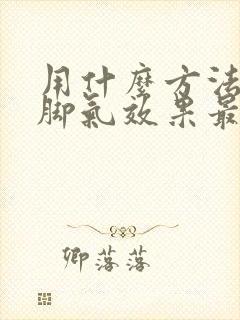 用什麼方法
脚氣效果最
卿落落